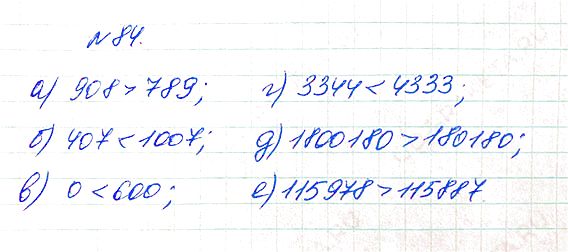 №84.
а) 908 > 789;
б) 407 < 1007;
в) 0 < 600;
г) 3344 < 4333;
д) 1800180 > 180180;
е) 115978 > 115887